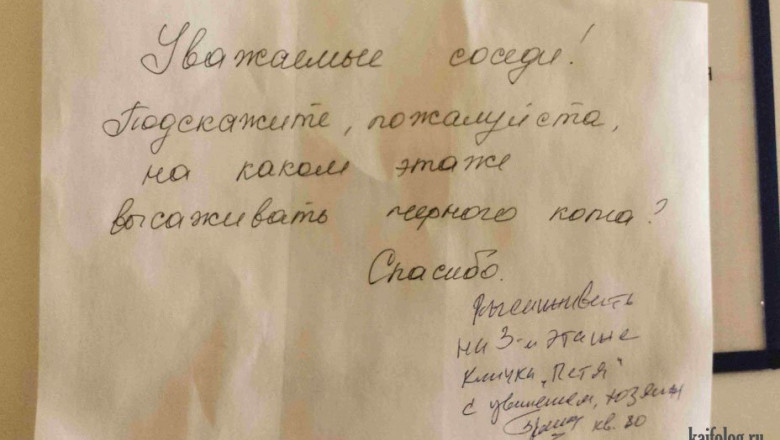 Уважаемые соседи!
Подскажите, пожалуйста,
на каком этаже
высаживать черного кота?
Спасибо.
Высаживать
на 3-м этаже
Кличка „Петя"
с уважением, хозяин
кв. 80
kaifolog.ru